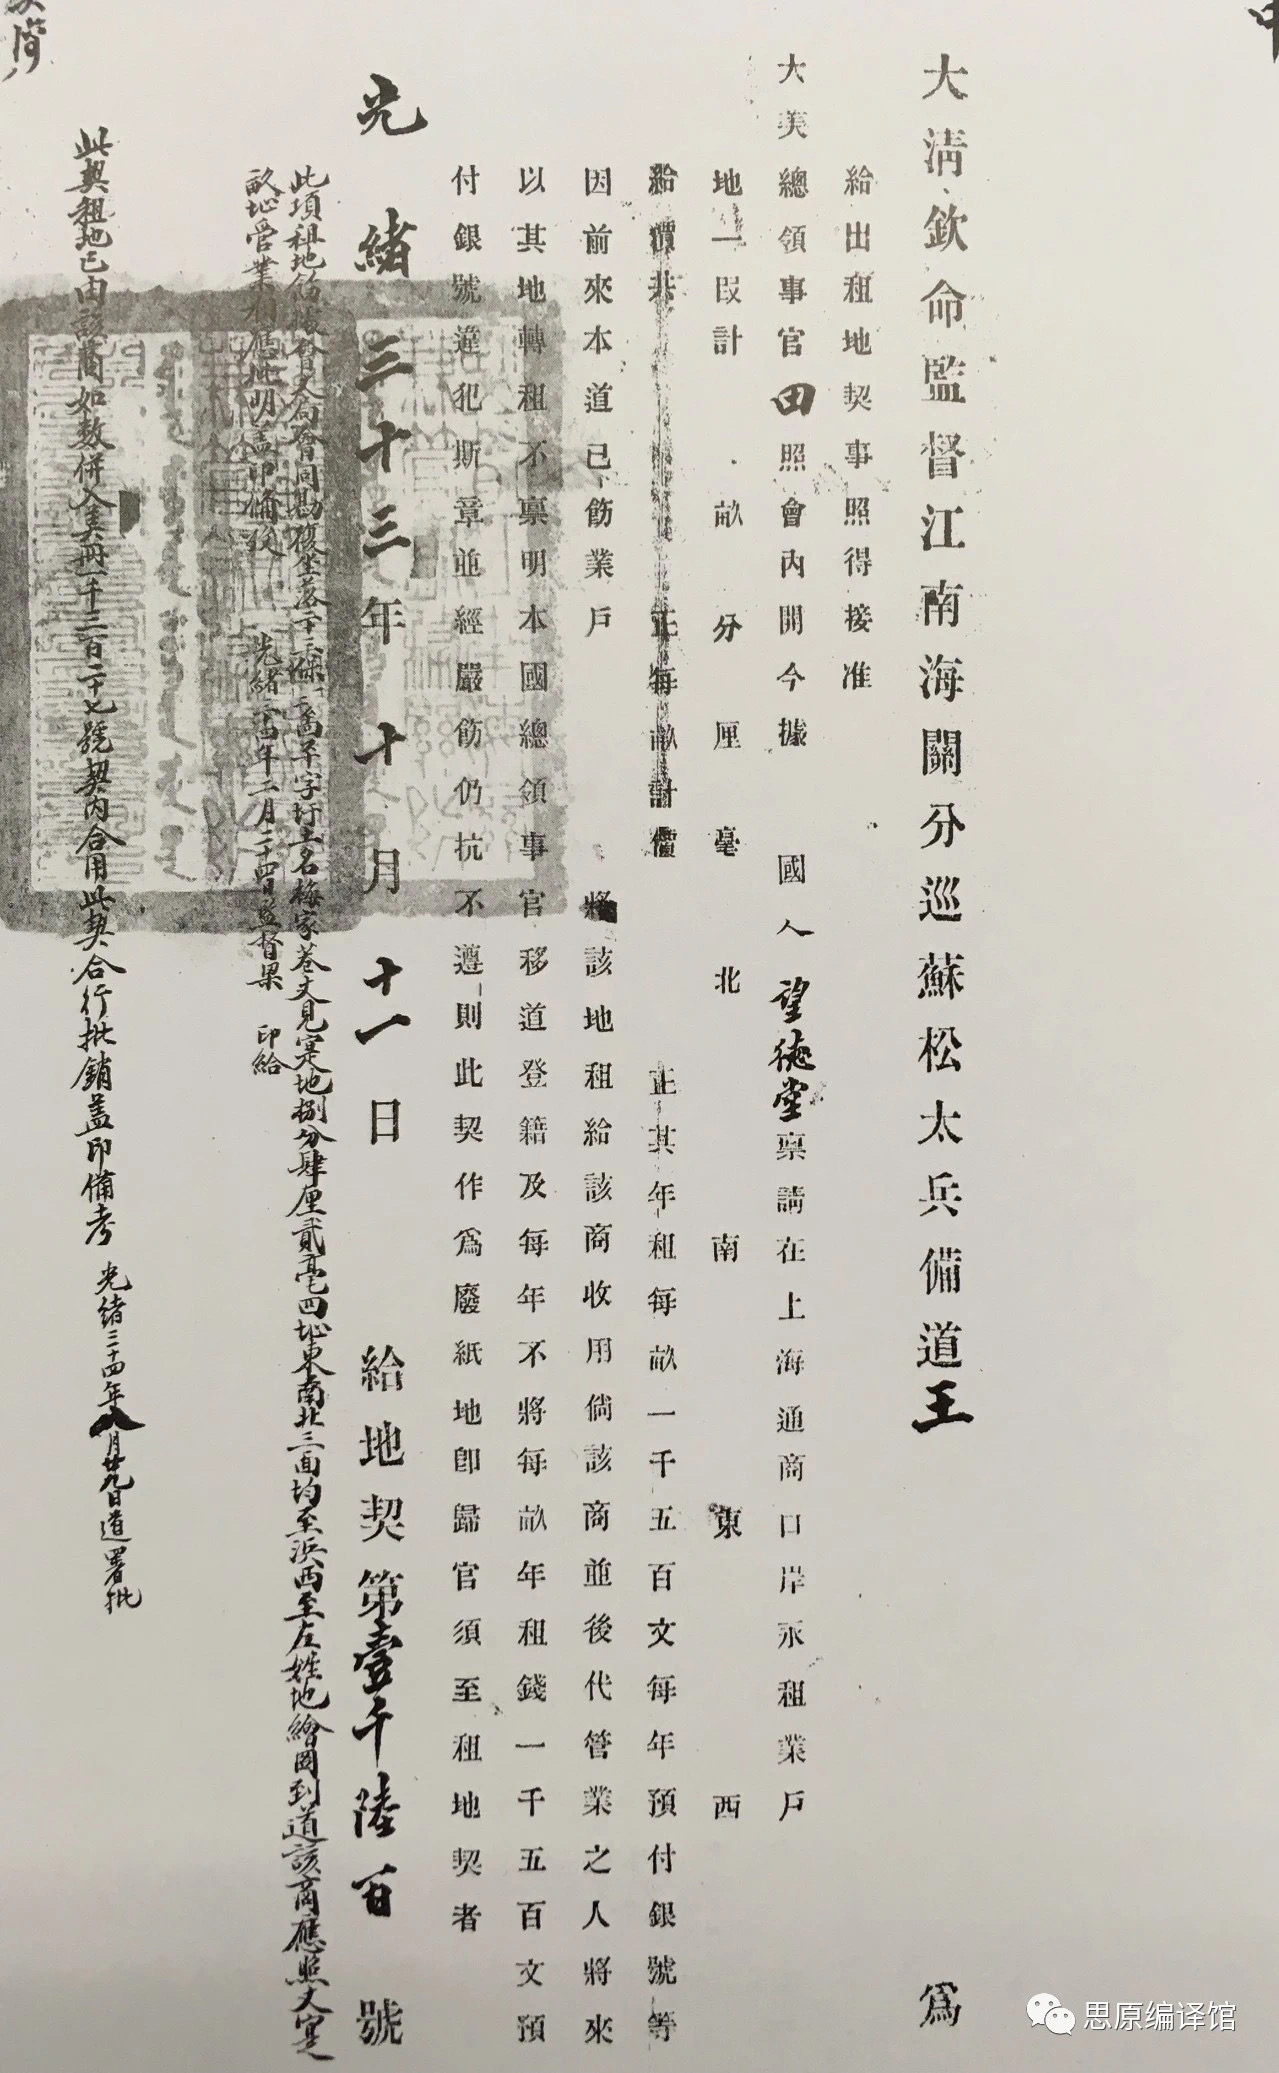 大清欽命監督江南海關分巡蘇松太兵備道王 為
給出租地契事照得接准
大美總領事官田照會內開今據 國人望德堂稟請在上海通商口岸永租業戶
地一段計 畝 分 厘 毫 北 南 東 西
給價共 正每畝計價 正其年租每畝一千五百文每年預付銀號等
因前來本道已飭業戶 將該地租給該商收用倘該商並後代管業之人將來
以其地轉租不稟明本國總領事官移道登籍及每年不將每畝年租錢一千五百文預
付銀號違犯斯章並經嚴飭仍抗不遵則此契作為廢紙地即歸官須至租地契者
光緒三十三年十月十一日 給地契第壹千陸百 號
此項租地飭據會丈局會同勘覆坐落二十三保一啚草字圩土名梅家巷丈見寔地捌分肆厘貳毫四址東南北三面均至浜西至左姓地繪圖到道該商應照丈寔
畝地管業相應批明蓋印備後 光緒三十四年二月二十四日監督果 印給
此契租地已由該商如數併入美冊一千三百二十七號契內合用此契合行批銷蓋印備考 光緒三十四年八月廿九日道署批
思原编译馆